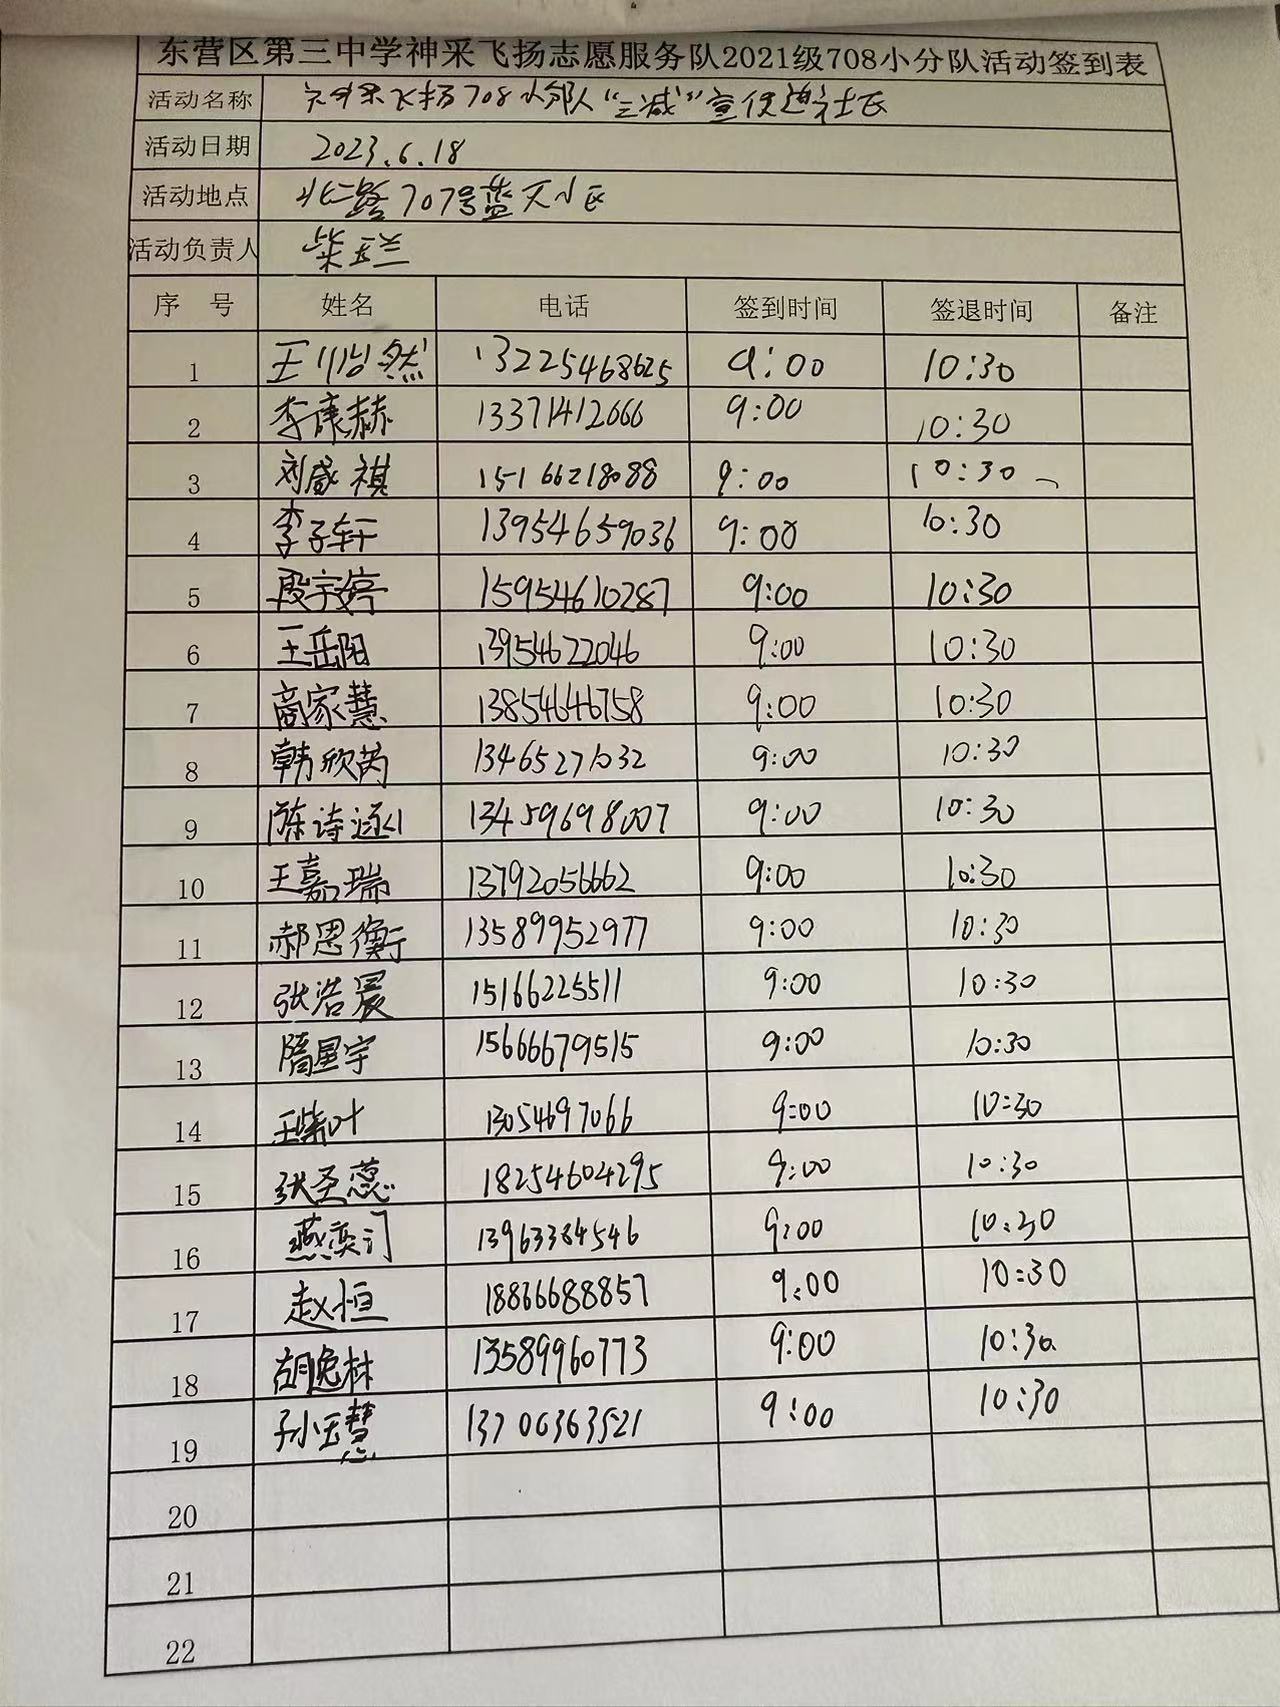 东营区第三中学神采飞扬志愿服务队2021级708小分队活动签到表
活动名称 神采飞扬708小分队“三减”宣传进社区
活动日期 2023.6.18
活动地点 北二路707号蓝天小区
活动负责人 柴玉兰
序 号 姓名 电话 签到时间 签退时间 备注
1 王怡然 13225468625 9:00 10:30
2 李康赫 13371412666 9:00 10:30
3 刘盛祺 15166218088 9:00 10:30
4 李子轩 13954659036 9:00 10:30
5 段宇婷 15954610287 9:00 10:30
6 王岳阳 13954622046 9:00 10:30
7 商家慧 13854646758 9:00 10:30
8 韩欣芮 13465271032 9:00 10:30
9 陈诗涵 13459698007 9:00 10:30
10 王嘉瑞 13792056662 9:00 10:30
11 郝思衡 13589952977 9:00 10:30
12 张浩晨 15166225511 9:00 10:30
13 隋星宇 15666679515 9:00 10:30
14 王紫叶 13054697066 9:00 10:30
15 张圣蕊 18254604295 9:00 10:30
16 燕奕汀 13963384546 9:00 10:30
17 赵恒 18866688857 9:00 10:30
18 胡逸林 13589960773 9:00 10:30
19 孙玉慧 13706363521 9:00 10:30
20
21
22